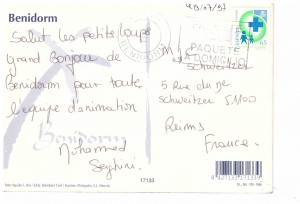 Benidorm
13/07/97
Salut les petits loups
grand Bonjour de
Benidorm pour toute
l'equipe d'animation
Mohammed
Seghini
BENIDORM
PAQUETE
A DOMICILIO
65
5 Rue du
Schweitzer 51100
Reims
France.
benidorm
17133